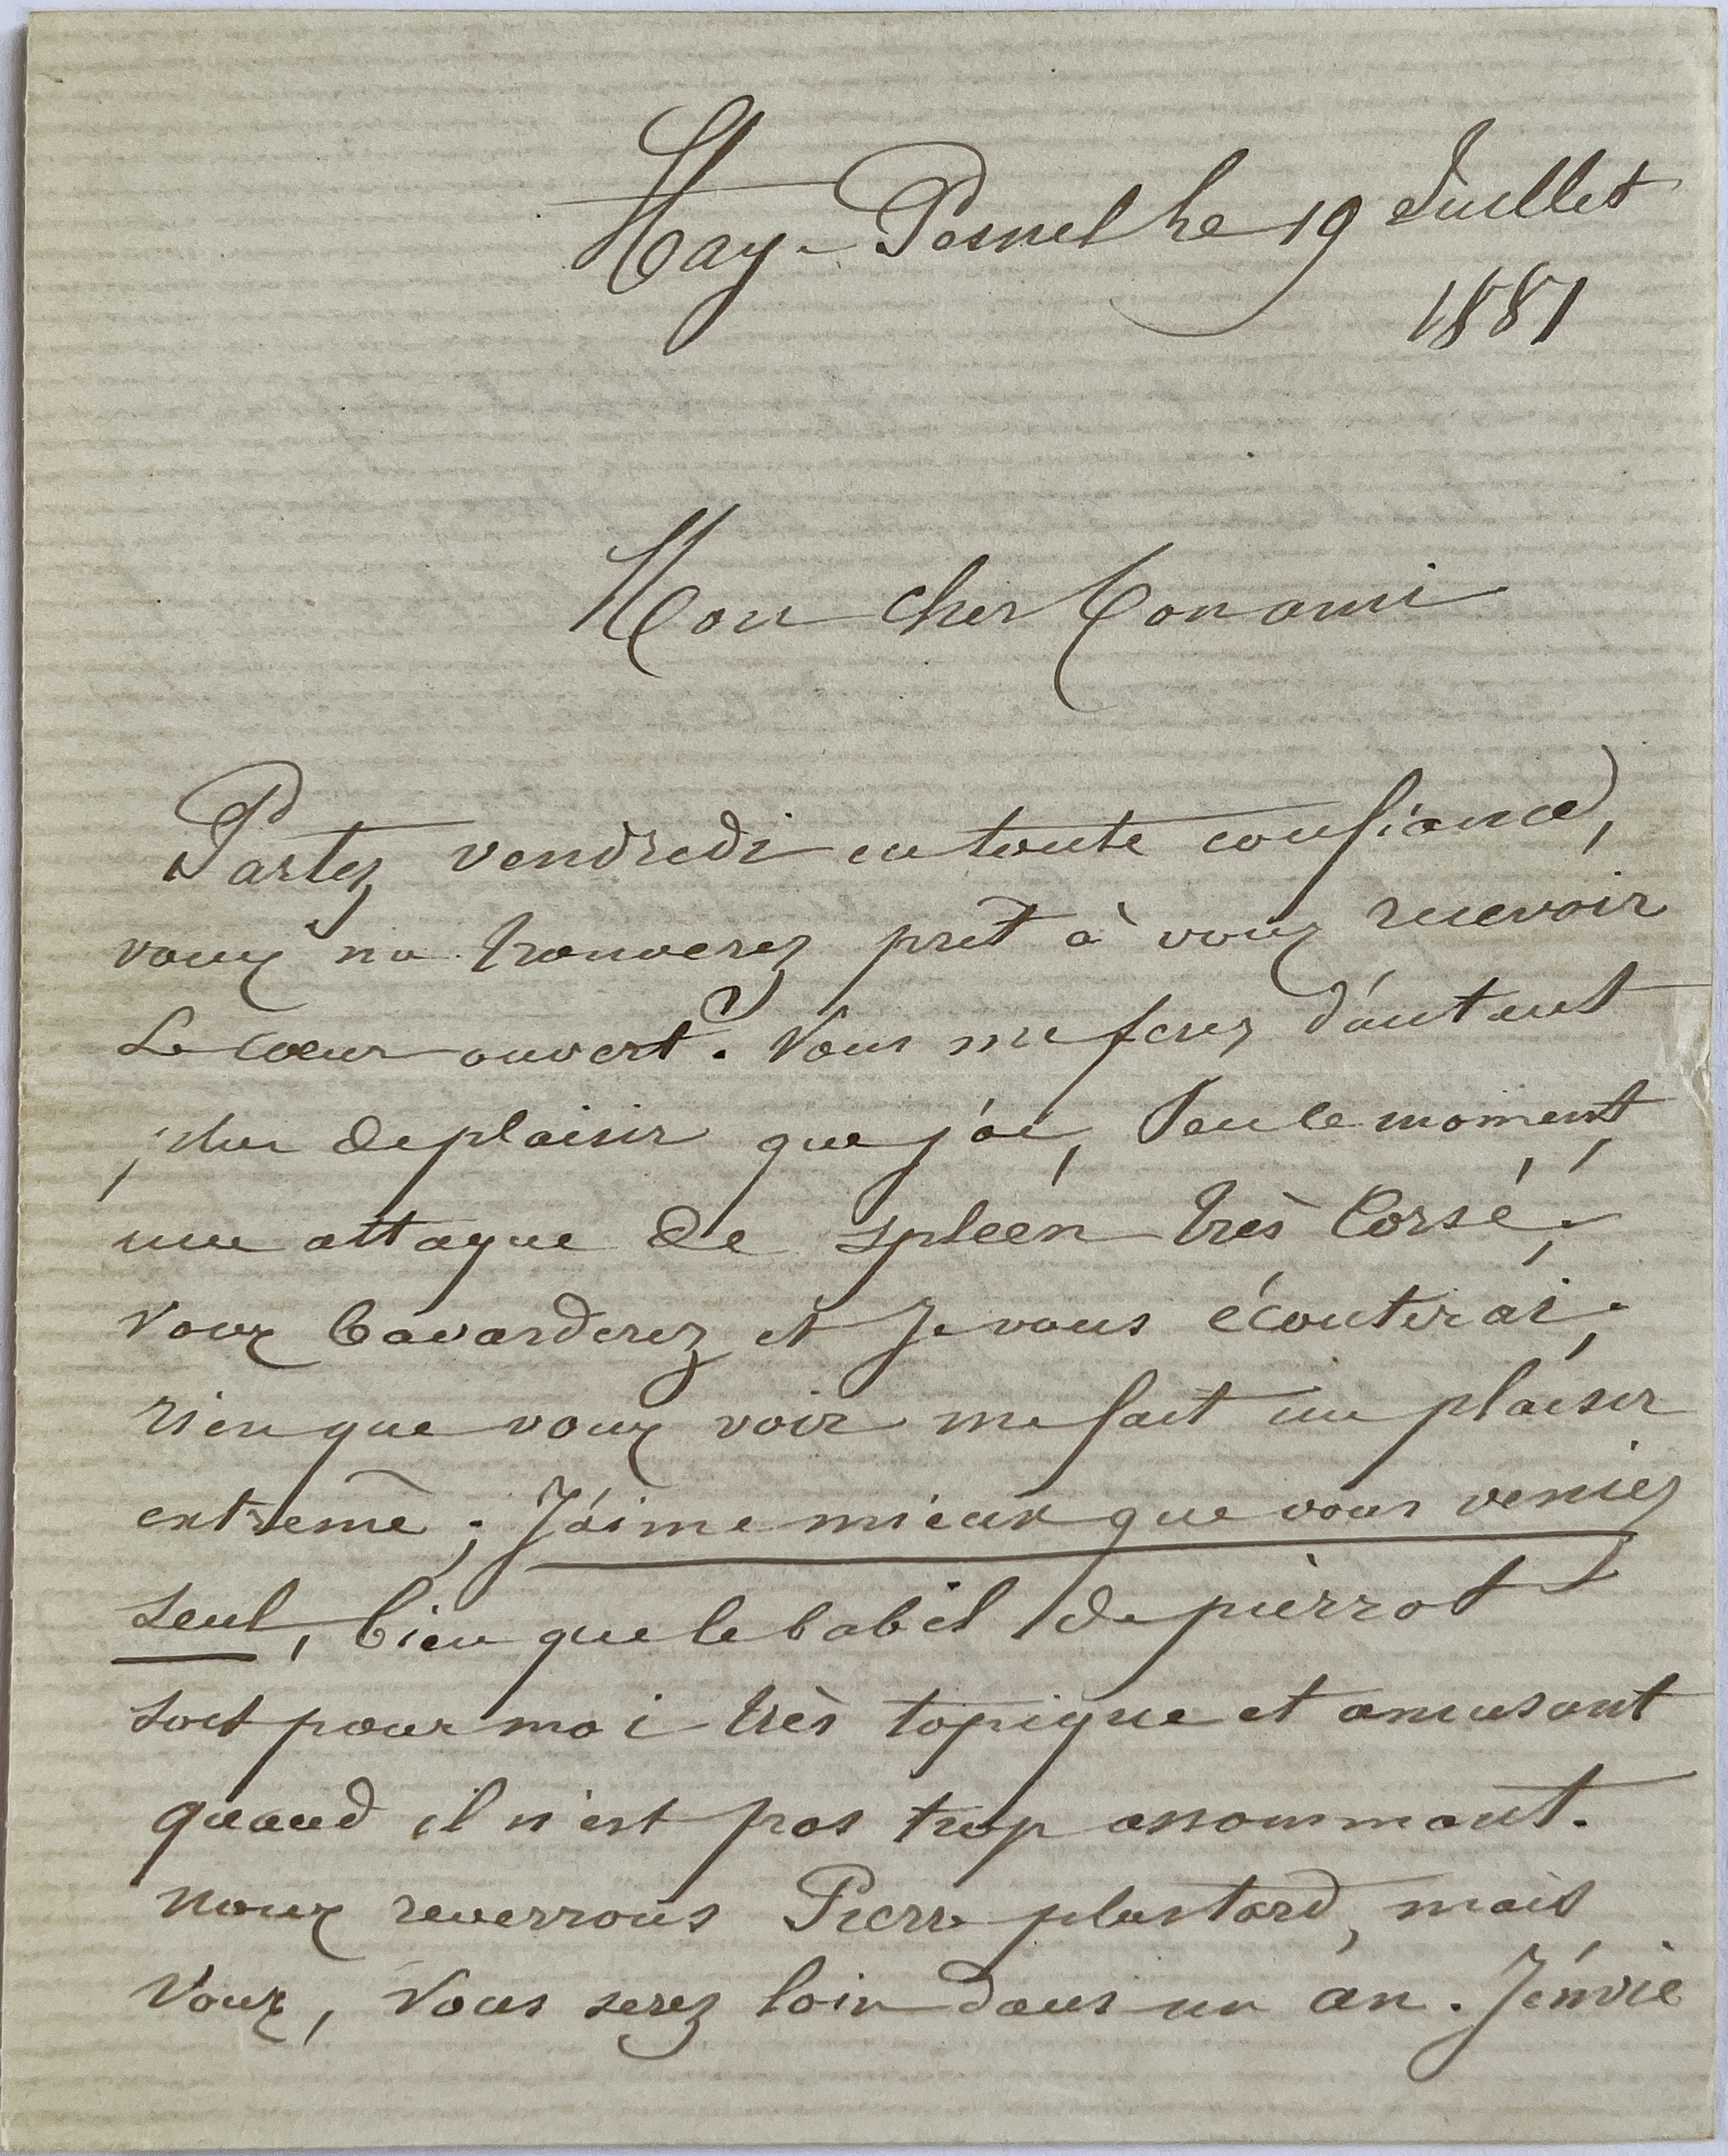 Hay-Pesnel le 19 Juillet
1881
Mon cher bon ami
Partez vendredi en toute confiance,
vous me trouverez prêt à vous recevoir
Le cœur ouvert. Vous me ferez d'autant
plus de plaisir que j'ai, Pour le moment,
une attaque de spleen très Corsé;
vous bavarderez et Je vous écouterai;
rien que vous voir me fait un plaisir
extreme; J'aime mieux que vous veniez
seul, bien que le babil de pierrot
soit pour moi très topique et amusant
quand il n'est pas trop assommant.
nous reverrons Pierre plus tard, mais
Vous, Vous serez loin dans un an. J'envie